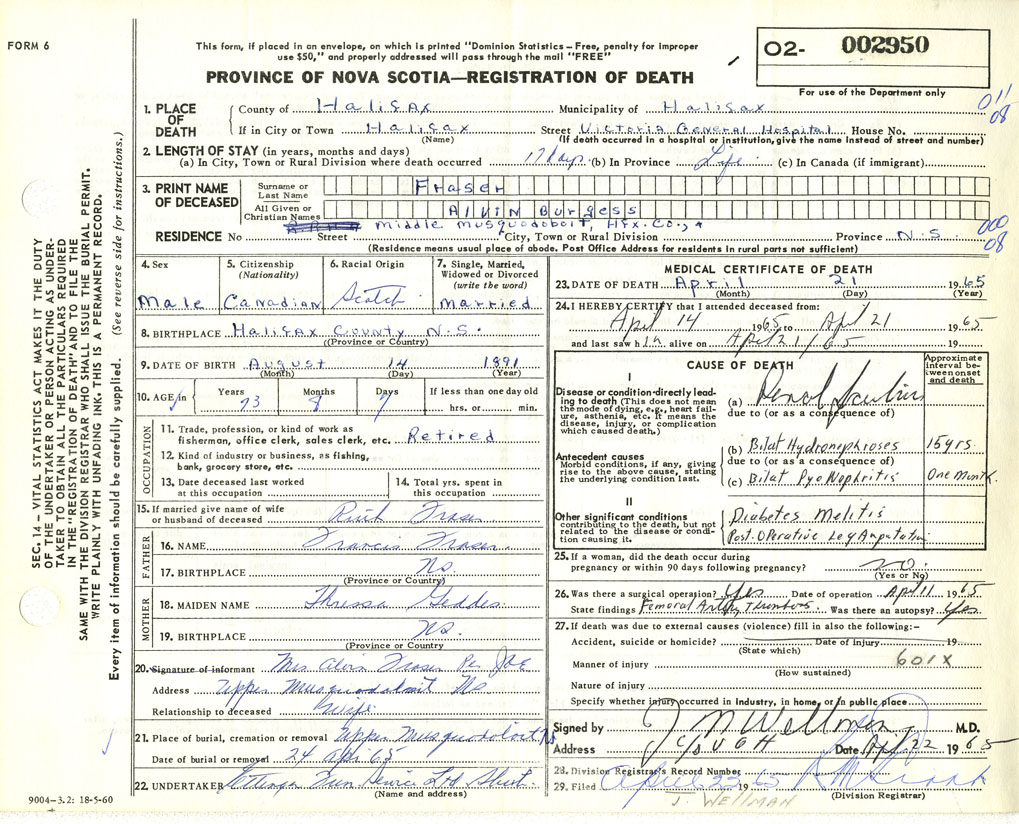 FORM 6
This form, if placed in an envelope, on which is printed "Dominion Statistics – Free, penalty for improper
use $50," and properly addressed will pass through the mail "FREE"
O2- 002950
For use of the Department only
PROVINCE OF NOVA SCOTIA—REGISTRATION OF DEATH
011
08
1. PLACE OF DEATH
County of Halifax Municipality of Halifax
If in City or Town Halifax Street Victoria General Hospital House No.
(Name) (If death occurred in a hospital or institution, give the name instead of street and number)
2. LENGTH OF STAY (in years, months and days)
(a) In City, Town or Rural Division where death occurred 17 days (b) In Province Life (c) In Canada (if immigrant)
3. PRINT NAME OF DECEASED
Surname or Last Name Fraser
All Given or Christian Names Alvin Burgess
Middle Musquodoboit, Hfx. Co.,
RESIDENCE No Street City, Town or Rural Division Province N.S
(Residence means usual place of abode. Post Office Address for residents in rural parts not sufficient)
000
08
4. Sex Male
5. Citizenship (Nationality) Canadian
6. Racial Origin Scotch
7. Single, Married, Widowed or Divorced (write the word) Married
8. BIRTHPLACE Halifax County N.S.
(Province or Country)
9. DATE OF BIRTH August 14 1891
(Month) (Day) (Year)
10. AGE in Years 73 Months 8 Days 7 If less than one day old
hrs. or min.
OCCUPATION
11. Trade, profession, or kind of work as
fisherman, office clerk, sales clerk, etc. Retired
12. Kind of industry or business, as fishing,
bank, grocery store, etc.
13. Date deceased last worked at this occupation
14. Total yrs. spent in this occupation
15. If married give name of wife
or husband of deceased Ruth Fraser
FATHER
16. NAME Francis Fraser
17. BIRTHPLACE NS.
(Province or Country)
MOTHER
18. MAIDEN NAME Thressa Geddes
19. BIRTHPLACE NS.
(Province or Country
20. Signature of informant Mrs Alvin Fraser Per
Address Upper Musquodoboit NS
Relationship to deceased Wife
21. Place of burial, cremation or removal Upper Musquodoboit
Date of burial or removal 24 Apr 65
22. UNDERTAKER
(Name and address)
MEDICAL CERTIFICATE OF DEATH
23. DATE OF DEATH April 21 1965
(Month) (Day) (Year)
24. I HEREBY CERTIFY that I attended deceased from:
April 14 1965 to April 21 1965
and last saw him alive on April 21/65 19
CAUSE OF DEATH
Approximate interval between onset and death
I
Disease or condition directly leading to death (This does not mean the mode of dying, e.g., heart failure, asthenia, etc. It means the disease, injury, or complication which caused death.)
(a) Renal
due to (or as a consequence of)
Antecedent causes
Morbid conditions, if any, giving rise to the above cause, stating the underlying condition last.
(b) Bilat Hydronephroses 15 yrs
due to (or as a consequence of)
(c) Bilat PyoNephritis One Month.
II
Other significant conditions
contributing to the death, but not related to the disease or condition causing it.
Diabetes Melitis
Post-Operative Leg Amputation
25. If a woman, did the death occur during
pregnancy or within 90 days following pregnancy? no.
(Yes or No)
26. Was there a surgical operation? Yes Date of operation April 1 1965
State findings Femoral Artery Thrombosis Was there an autopsy? Yes
27. If death was due to external causes (violence) fill in also the following:–
Accident, suicide or homicide? Date of injury 19
(State which)
601X
Manner of injury
(How sustained)
Nature of injury
Specify whether injury occurred in Industry, in home, or in public place
Signed by J M Wellman M.D.
Address Date Apr 22 1965
28. Division Registrar's Record Number
29. Filed April 23 1965
(Division Registrar)
J. WELLMAN
SEC. 14 – VITAL STATISTICS ACT MAKES IT THE DUTY
OF THE UNDERTAKER OR PERSON ACTING AS UNDER-
TAKER TO OBTAIN ALL THE PARTICULARS REQUIRED
IN THE "REGISTRATION OF DEATH" AND TO FILE THE
SAME WITH THE DIVISION REGISTRAR WHO SHALL ISSUE THE BURIAL PERMIT.
WRITE PLAINLY WITH UNFADING INK. THIS IS A PERMANENT RECORD.
Every item of information should be carefully supplied. (See reverse side for instructions.)
9004–3.2: 18-5-60